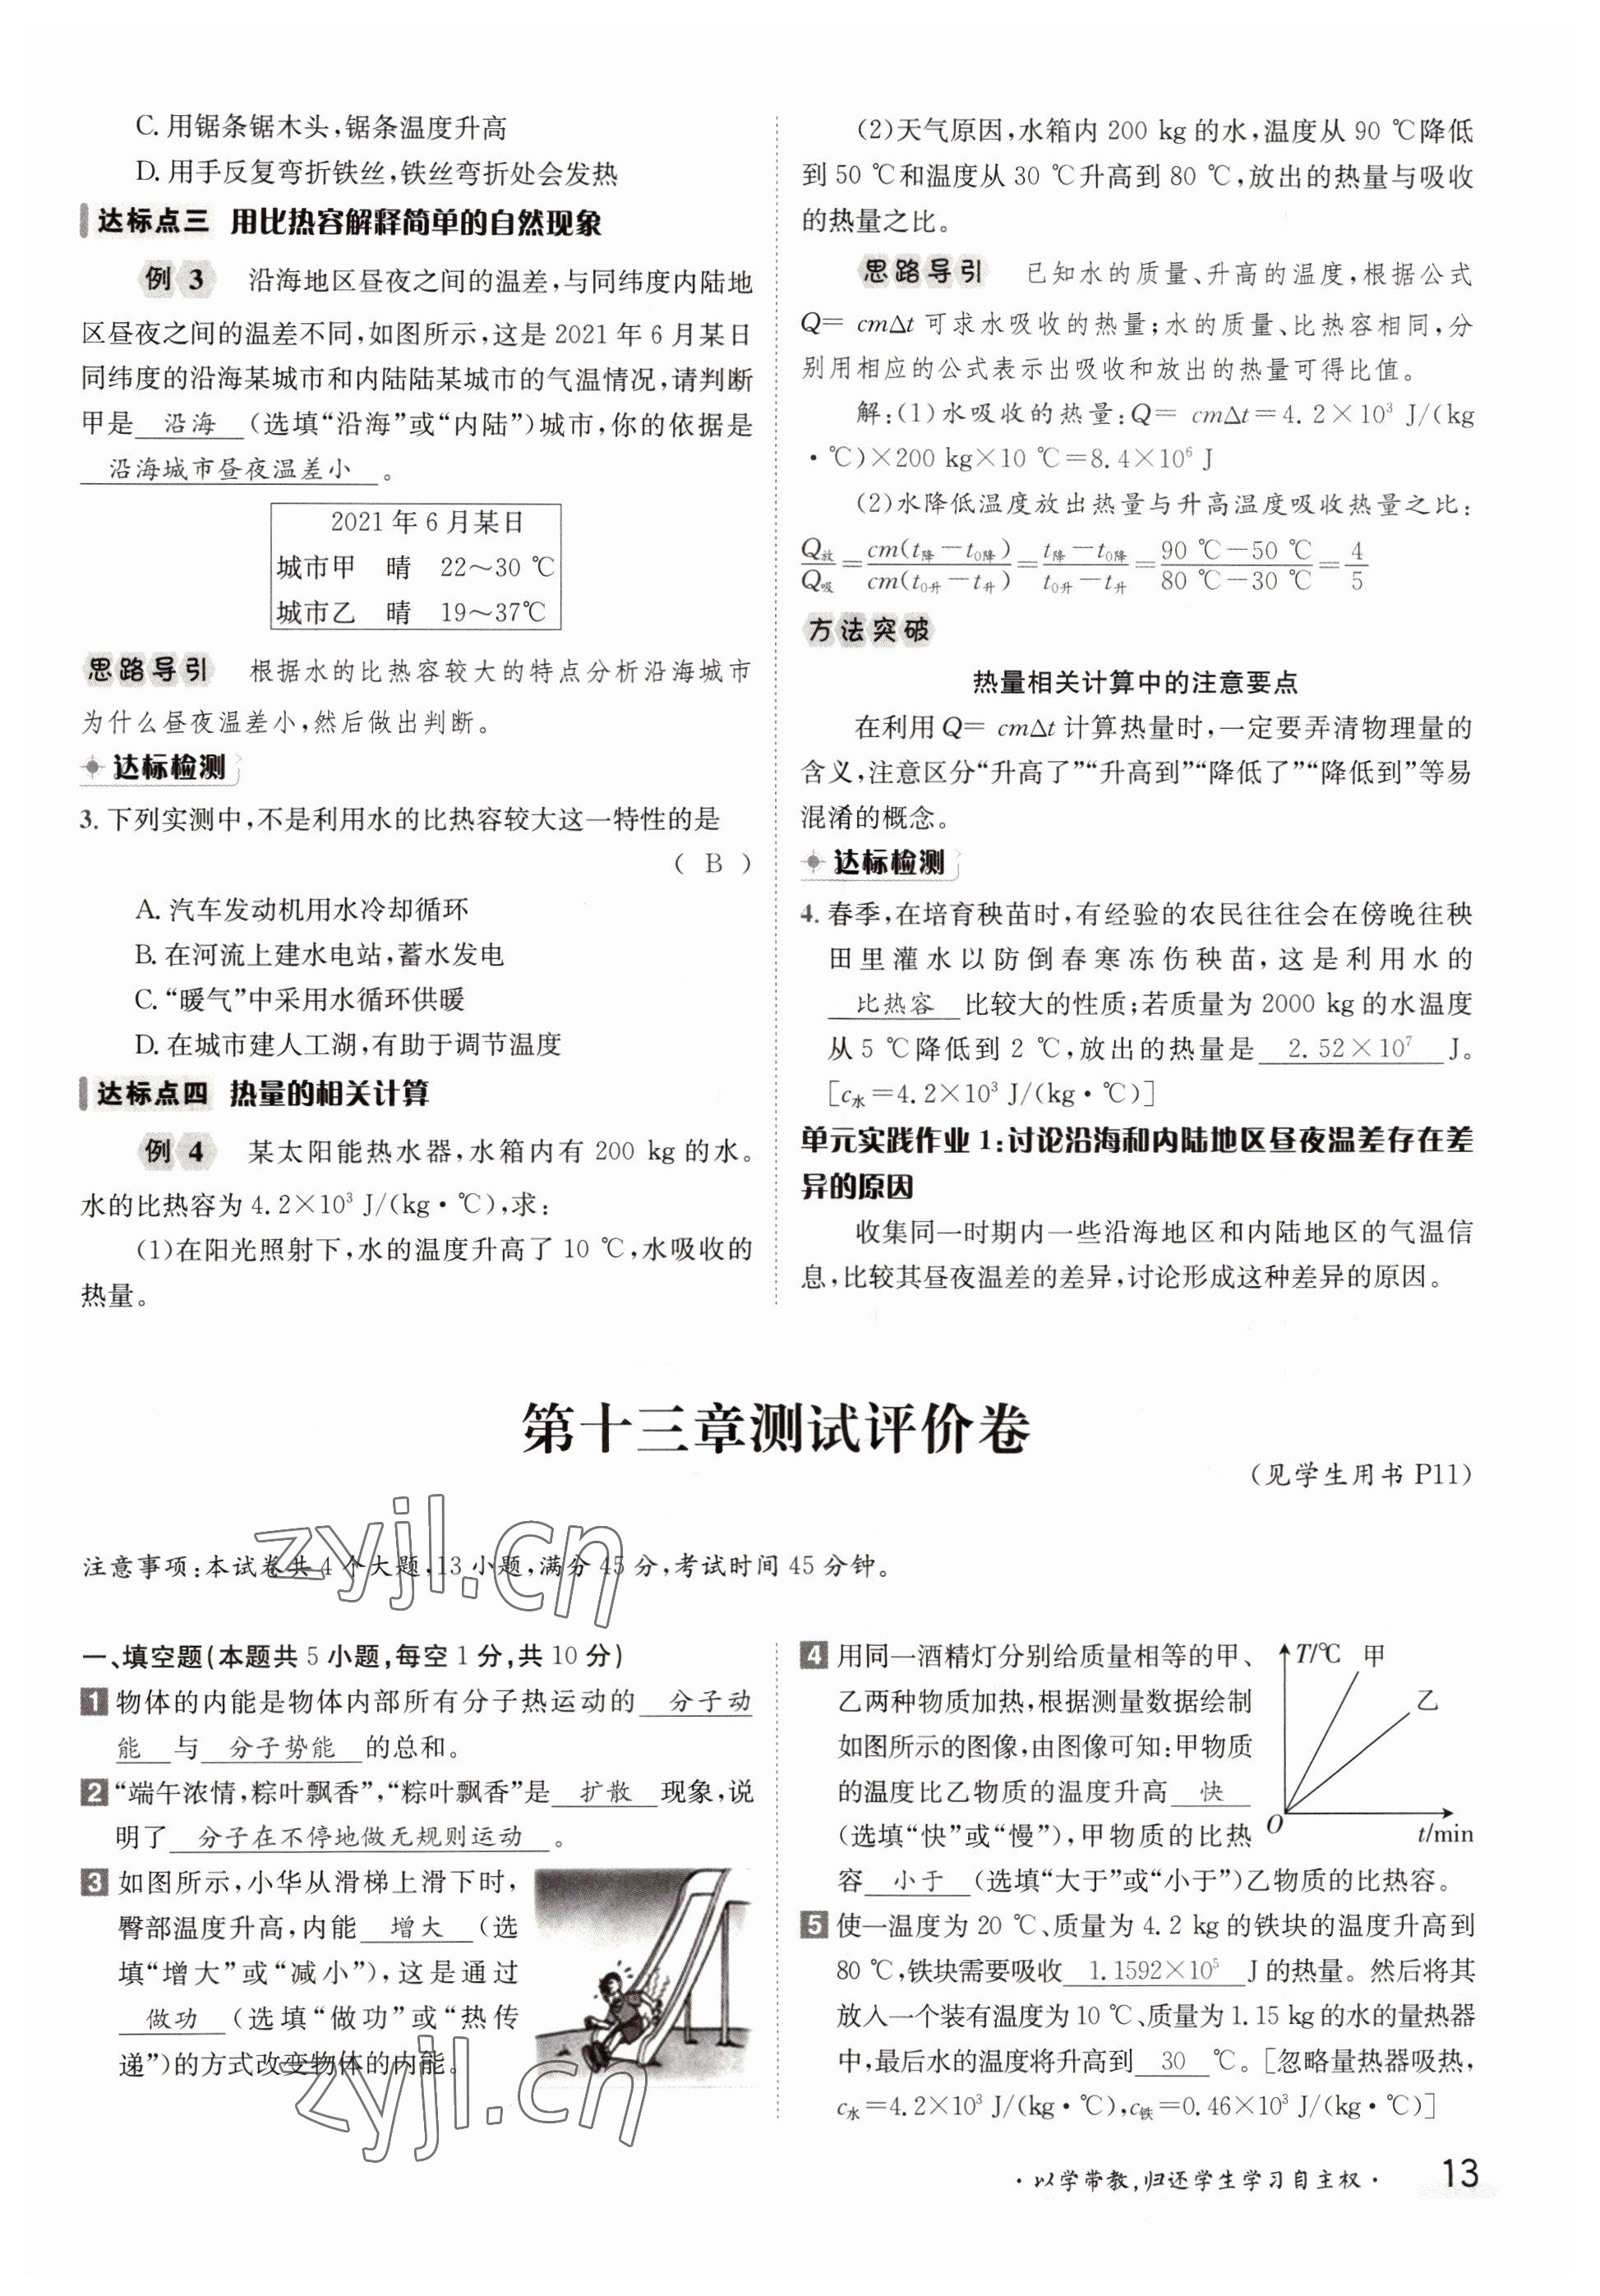 C. 用锯条锯木头,锯条温度升高
D. 用手反复弯折铁丝,铁丝弯折处会发热
达标点三 用比热容解释简单的自然现象
例 3 沿海地区昼夜之间的温差,与同纬度内陆地
区昼夜之间的温差不同,如图所示,这是 2021 年 6 月某日
同纬度的沿海某城市和内陆陆某城市的气温情况,请判断
甲是 沿海 (选填“沿海”或“内陆”)城市,你的依据是
沿海城市昼夜温差小 。
2021 年 6 月某日
城市甲 晴 22～30 ℃
城市乙 晴 19～37℃
思路导引 根据水的比热容较大的特点分析沿海城市
为什么昼夜温差小,然后做出判断。
达标检测
3. 下列实测中,不是利用水的比热容较大这一特性的是
( B )
A. 汽车发动机用水冷却循环
B. 在河流上建水电站,蓄水发电
C. “暖气”中采用水循环供暖
D. 在城市建人工湖,有助于调节温度
达标点四 热量的相关计算
例 4 某太阳能热水器,水箱内有 200 kg 的水。
水的比热容为 4.2×10³ J/(kg·℃),求:
(1)在阳光照射下,水的温度升高了 10 ℃,水吸收的
热量。
(2)天气原因,水箱内 200 kg 的水,温度从 90 ℃降低
到 50 ℃和温度从 30 ℃升高到 80 ℃,放出的热量与吸收
的热量之比。
思路导引 已知水的质量、升高的温度,根据公式
Q= cmΔt 可求水吸收的热量;水的质量、比热容相同,分
别用相应的公式表示出吸收和放出的热量可得比值。
解:(1)水吸收的热量:Q= cmΔt=4.2×10³ J/(kg
·℃)×200 kg×10 ℃=8.4×10⁶ J
(2)水降低温度放出热量与升高温度吸收热量之比:
Q放/Q吸=cm(t降-t0降)/cm(t0升-t升)=(t降-t0降)/(t0升-t升)=(90 ℃-50 ℃)/(80 ℃-30 ℃)=4/5
方法突破
热量相关计算中的注意要点
在利用 Q= cmΔt 计算热量时,一定要弄清物理量的
含义,注意区分“升高了”“升高到”“降低了”“降低到”等易
混淆的概念。
达标检测
4. 春季,在培育秧苗时,有经验的农民往往会在傍晚往秧
田里灌水以防倒春寒冻伤秧苗,这是利用水的
比热容 比较大的性质;若质量为 2000 kg 的水温度
从 5 ℃降低到 2 ℃,放出的热量是 2.52×10⁷ J。
[c水=4.2×10³ J/(kg·℃)]
单元实践作业 1:讨论沿海和内陆地区昼夜温差存在差
异的原因
收集同一时期内一些沿海地区和内陆地区的气温信
息,比较其昼夜温差的差异,讨论形成这种差异的原因。
第十三章测试评价卷
(见学生用书 P11)
zyjl.cn
注意事项:本试卷共 4 个大题,13 小题,满分 45 分,考试时间 45 分钟。
一、填空题(本题共 5 小题,每空 1 分,共 10 分)
1 物体的内能是物体内部所有分子热运动的 分子动
能 与 分子势能 的总和。
2 “端午浓情,粽叶飘香”,“粽叶飘香”是 扩散 现象,说
明了 分子在不停地做无规则运动 。
3 如图所示,小华从滑梯上滑下时,
臀部温度升高,内能 增大 (选
填“增大”或“减小”),这是通过
做功 (选填“做功”或“热传
递”)的方式改变物体的内能。
zyjl.cn
4 用同一酒精灯分别给质量相等的甲、
乙两种物质加热,根据测量数据绘制
如图所示的图像,由图像可知:甲物质
的温度比乙物质的温度升高 快
(选填“快”或“慢”),甲物质的比热
容 小于 (选填“大于”或“小于”)乙物质的比热容。
T/℃ 甲
乙
O
t/min
5 使一温度为 20 ℃、质量为 4.2 kg 的铁块的温度升高到
80 ℃,铁块需要吸收 1.1592×10⁵ J 的热量。然后将其
放入一个装有温度为 10 ℃、质量为 1.15 kg 的水的量热器
中,最后水的温度将升高到 30 ℃。[忽略量热器吸热,
c水=4.2×10³ J/(kg·℃),c铁=0.46×10³ J/(kg·℃)]
·以学带教,归还学生学习自主权· 13